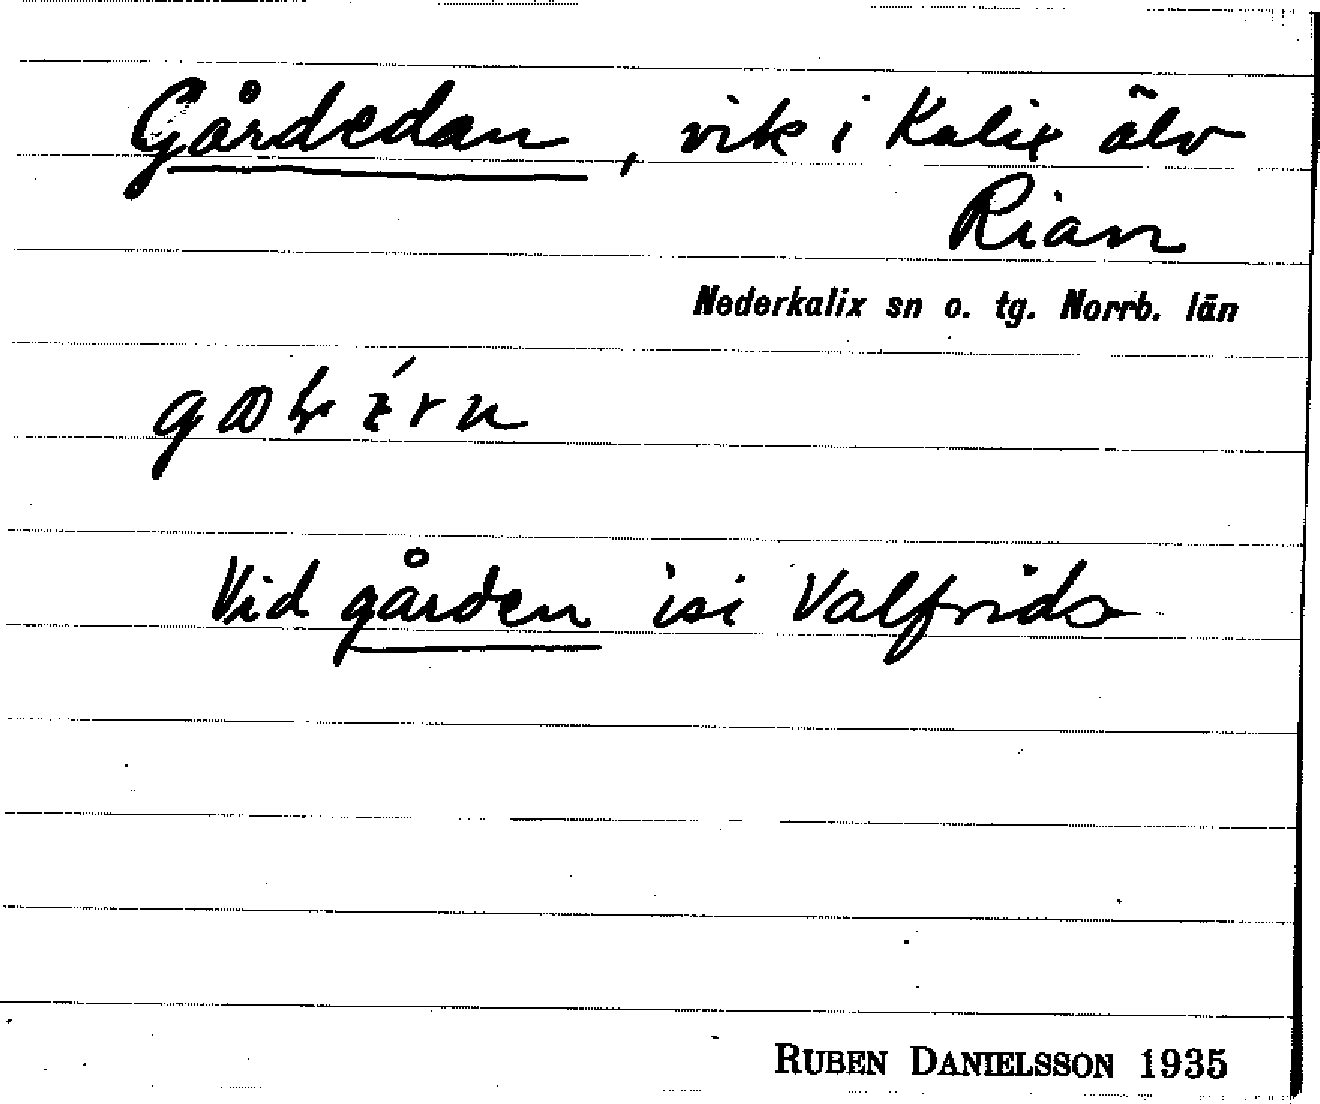 Gårdedan, vik i Kalix älv
Rian
Nederkalix sn o. tg. Norrb. län
Vid gården isi Valfrids
RUBEN DANIELSSON 1935